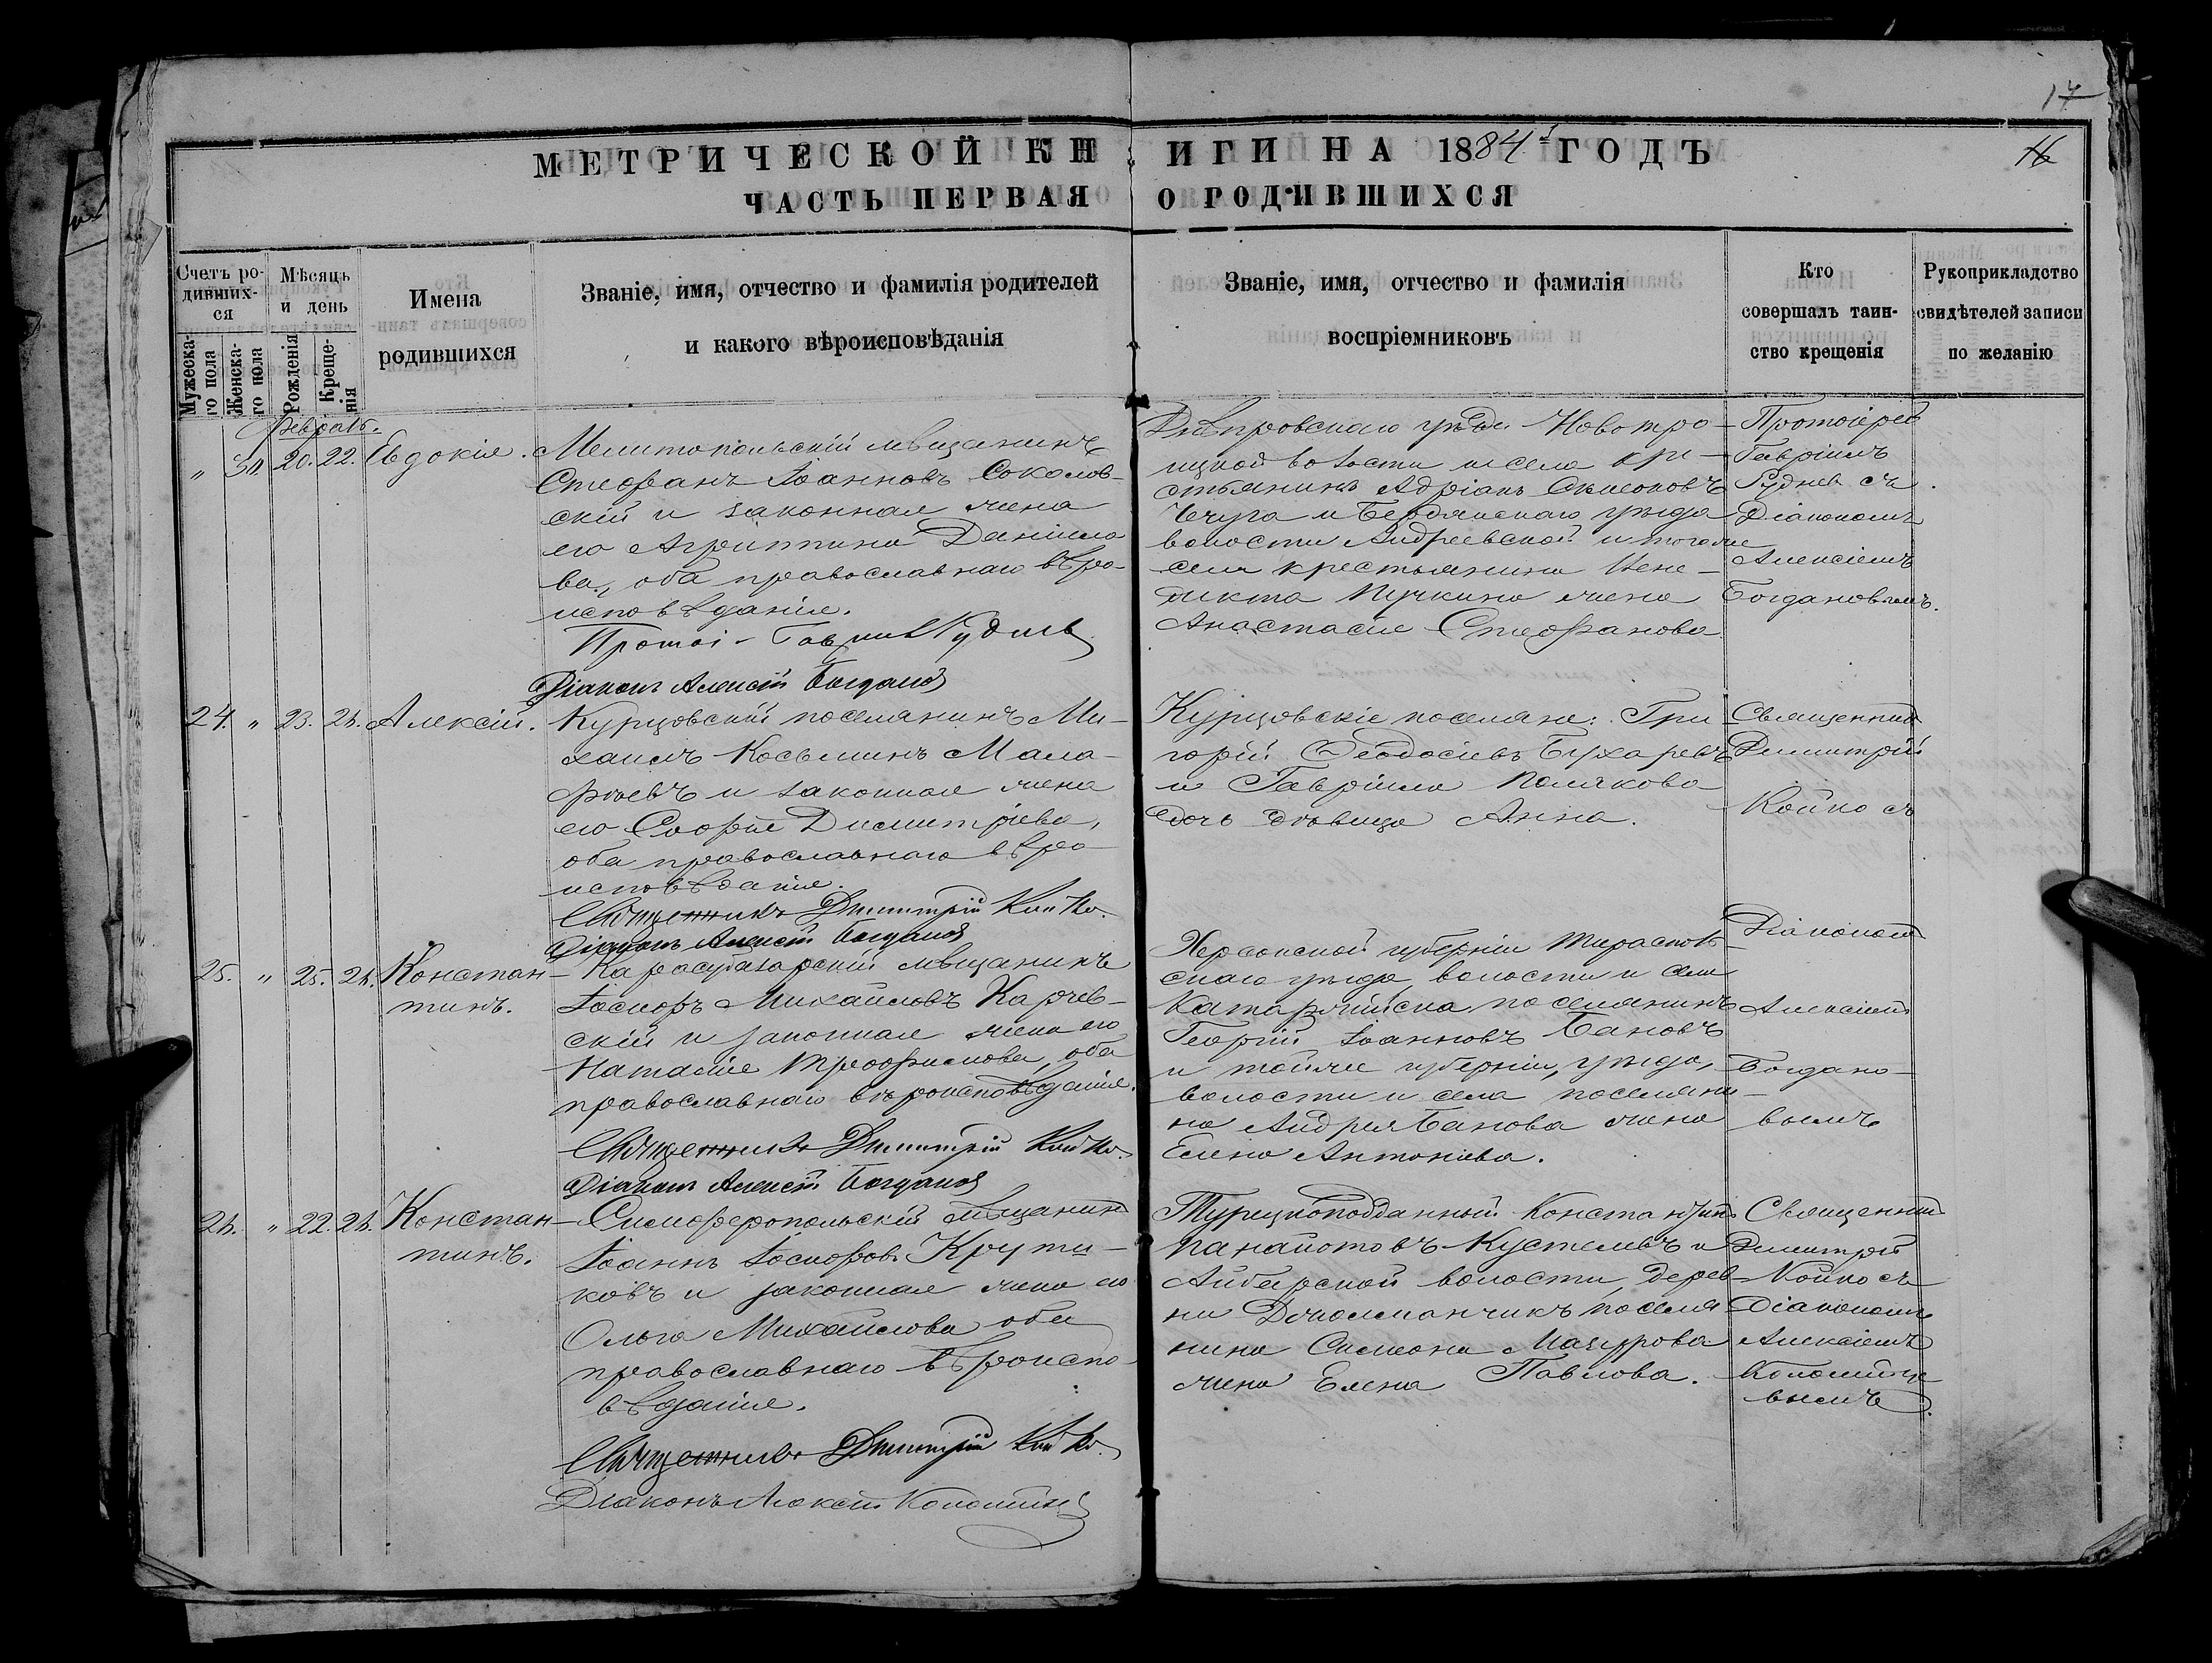 17
МЕТРИЧЕСКОЙ КНИГИ НА 1884й ГОДЪ
16
ЧАСТЬ ПЕРВАЯ О РОДИВШИХСЯ
Счетъ ро-
дивших-
ся
Мужеска-
го пола
Женска-
го пола
Мѣсяцъ
и день
Рожденія
Креще-
нія
Имена
родившихся
Званіе, имя, отчество и фамилія родителей
и какого вѣроисповѣданія
Званіе, имя, отчество и фамилія
воспріемниковъ
Кто
совершалъ таин-
ство крещенія
Рукоприкладство
свидѣтелей записи
по желанію
Февраль.
" 20. 22. Евдокія.
Мелитопольскій мѣщанинъ
Стефанъ Іоанновъ Соколов-
скій и законная жена
его Агриппина Даніило-
ва, оба православнаго вѣро-
исповѣданія.
Протоі- Гавріилъ Рудневъ
Діаконъ Алексій Богдановъ
Днѣпровскаго уѣзда Новотро-
ицкой волости и села кре-
стьянинъ Адріанъ Симеоновъ
Чечуга и Бердянскаго уѣзда
волости Андреевской и тогоже
села крестьянина Бене-
дикта Пучкина жена
Анастасія Стефанова
Протоіерей
Гавріилъ
Рудневъ съ
Діакономъ
Алексіемъ
Богдановымъ.
24. " 23. 24. Алексій.
Курцовскій поселянинъ Ми-
хаилъ Косьминъ Мала-
феевъ и законная жена
его Софія Димитріева,
оба православнаго вѣро-
исповѣданія.
Священникъ Димитрій Койко.
Діаконъ Алексій Богдановъ
Курцовскіе поселяне: Гри-
горій Ѳеодосіевъ Бухаревъ
и Гавріила Полякова
дочь дѣвица Анна.
Священникъ
Димитрій
Койко съ
Діакономъ
Алексіемъ
Богдано-
вымъ
25. " 25. 26. Констан-
тинъ.
Карасубазарскій мѣщанинъ
Іосифъ Михайловъ Карчев-
скій и законная жена его
Наталія Трофимова, оба
православнаго вѣроисповѣданія.
Священникъ Димитрій Койко.
Діаконъ Алексій Богдановъ
Херсонской губерніи Тираспол-
скаго уѣзда, волости и села
Катаржійска поселянинъ
Георгій Іоанновъ Бановъ
и тойже губерніи, уѣзда,
волости и села поселяни-
на Андрея Банова жена
Елена Антонова.
26. " 22. 26. Констан-
тинъ.
Симферопольскій мѣщанинъ
Іоаннъ Іосифовъ Крути-
ковъ и законная жена его
Ольга Михайлова оба
православнаго вѣроиспо-
вѣданія.
Священникъ Димитрій Койко.
Діаконъ Алексій Коломійцевъ
Турецкоподданный Константинъ
Панаіотовъ и
Айбарской волости, дерев-
ни поселя-
нина Симеона
жена Елена Павлова.
Священникъ
Димитрій
Койко съ
Діакономъ
Алексіемъ
Коломійце-
вымъ